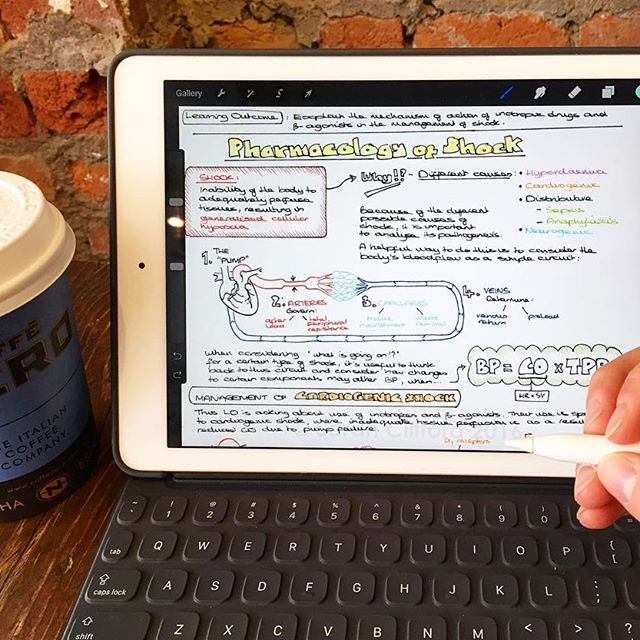 Gallery
Learning Outcome : Explain the mechanism of action of inotropic drugs and
β-agonists in the management of shock.
Pharmacology of Shock
SHOCK:
Inability of the body to
adequately perfuse
tissues, resulting in
generalised cellular
hypoxia
Why!? - Different causes:
• Hypovolaemic
• Cardiogenic
• Distributive
- Sepsis
- Anaphylaxis
• Neurogenic
Because of the different
possible causes of
shock, it is important
to analyse its pathogenesis.
A helpful way to do this is to consider the
body's bloodflow as a simple circuit:
1. THE
"PUMP"
2. ARTERIES
Govern:
after load
total peripheral resistance
3. CAPILLARIES
tissue nourishment
waste removal
4. VEINS
Determine:
venous return
preload
When considering 'what is going on!?'
for a certain type of shock, it's useful to think
back to this circuit and consider how changes
to certain components may alter BP, when...
BP = CO x TPR
HR x SV
MANAGEMENT OF CARDIOGENIC SHOCK
This LO is asking about use of inotropes and β-agonists. Their use is
to cardiogenic shock, where inadequate tissue perfusion is as a
reduced CO due to pump failure.
Clifford 2016
receptors
CAFFÈ
NERO
THE ITALIAN
COFFEE
COMPANY
tab
Q W E R T Y U I O P
caps lock
A S D F G H J K L
shift
Z X C V B N M